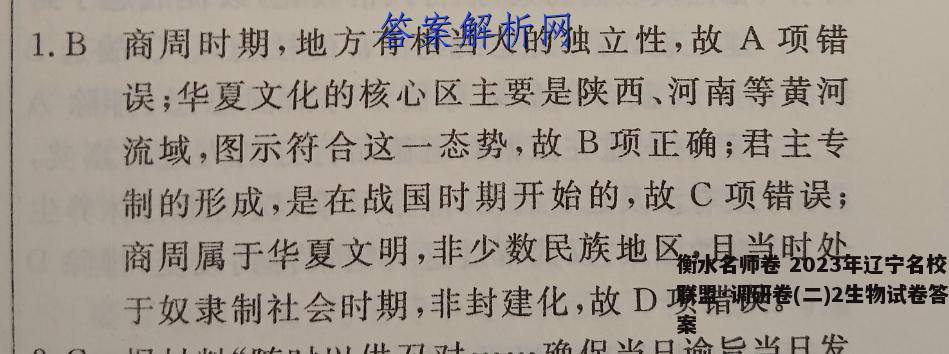 答案解析网
1.B 商周时期,地方有相当大的独立性,故 A 项错
误;华夏文化的核心区主要是陕西、河南等黄河
流域,图示符合这一态势,故 B 项正确;君主专
制的形成,是在战国时期开始的,故 C 项错误;
商周属于华夏文明,非少数民族地区,且当时处
于奴隶制社会时期,非封建化,故 D 项错误。
衡水名师卷 2023年辽宁名校
联盟 调研卷(二)2生物试卷答
案